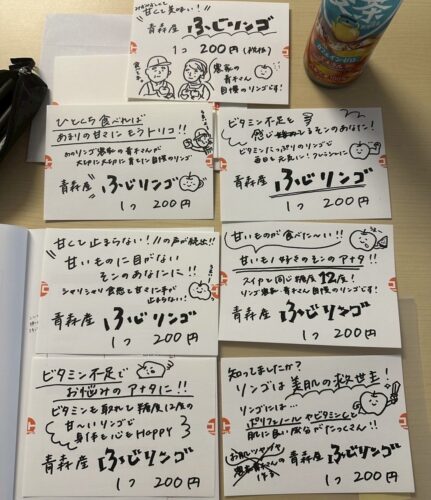 みずみずしくて
甘くて美味い！
青森産 ふじリンゴ
1コ 200円(税抜)
農家の
青木さん
自慢のリンゴです！
ひとくち食べれば
あまりの甘さに もうトリコ!!
大切に大切に育てた自慢のリンゴ
青森産 ふじリンゴ
1つ 200円
ビタミン不足を
感じているそのあなた！
ビタミンたっぷりのリンゴで
毎日を元気に！フレッシュに
青森産 ふじリンゴ
1つ 200円
"甘くて止まらない！"の声が続出!!
甘いものに目がない
そのあなたに!!
シャリシャリ食感と甘さに手が
止まらない！
青森産 ふじリンゴ
1つ 200円
甘いものが食べた〜い!!
甘いもの好きのそのアナタ!!
スイカと同じ糖度12度！
リンゴ農家・青木さん自慢のリンゴです！
青森産 ふじリンゴ
1つ 200円
ビタミン不足で
お悩みのアナタに!!
ビタミンも取れて 糖度12度の
甘〜いリンゴで
身体も心もHAPPY
青森産 ふじリンゴ
1つ 200円
知ってましたか？
リンゴは美肌の救世主！
リンゴには…
ポリフェノールやビタミンCなど
肌に良い成分がたっくさん!!
お肌ツヤツヤ
青森産 ふじリンゴ
1つ 200円